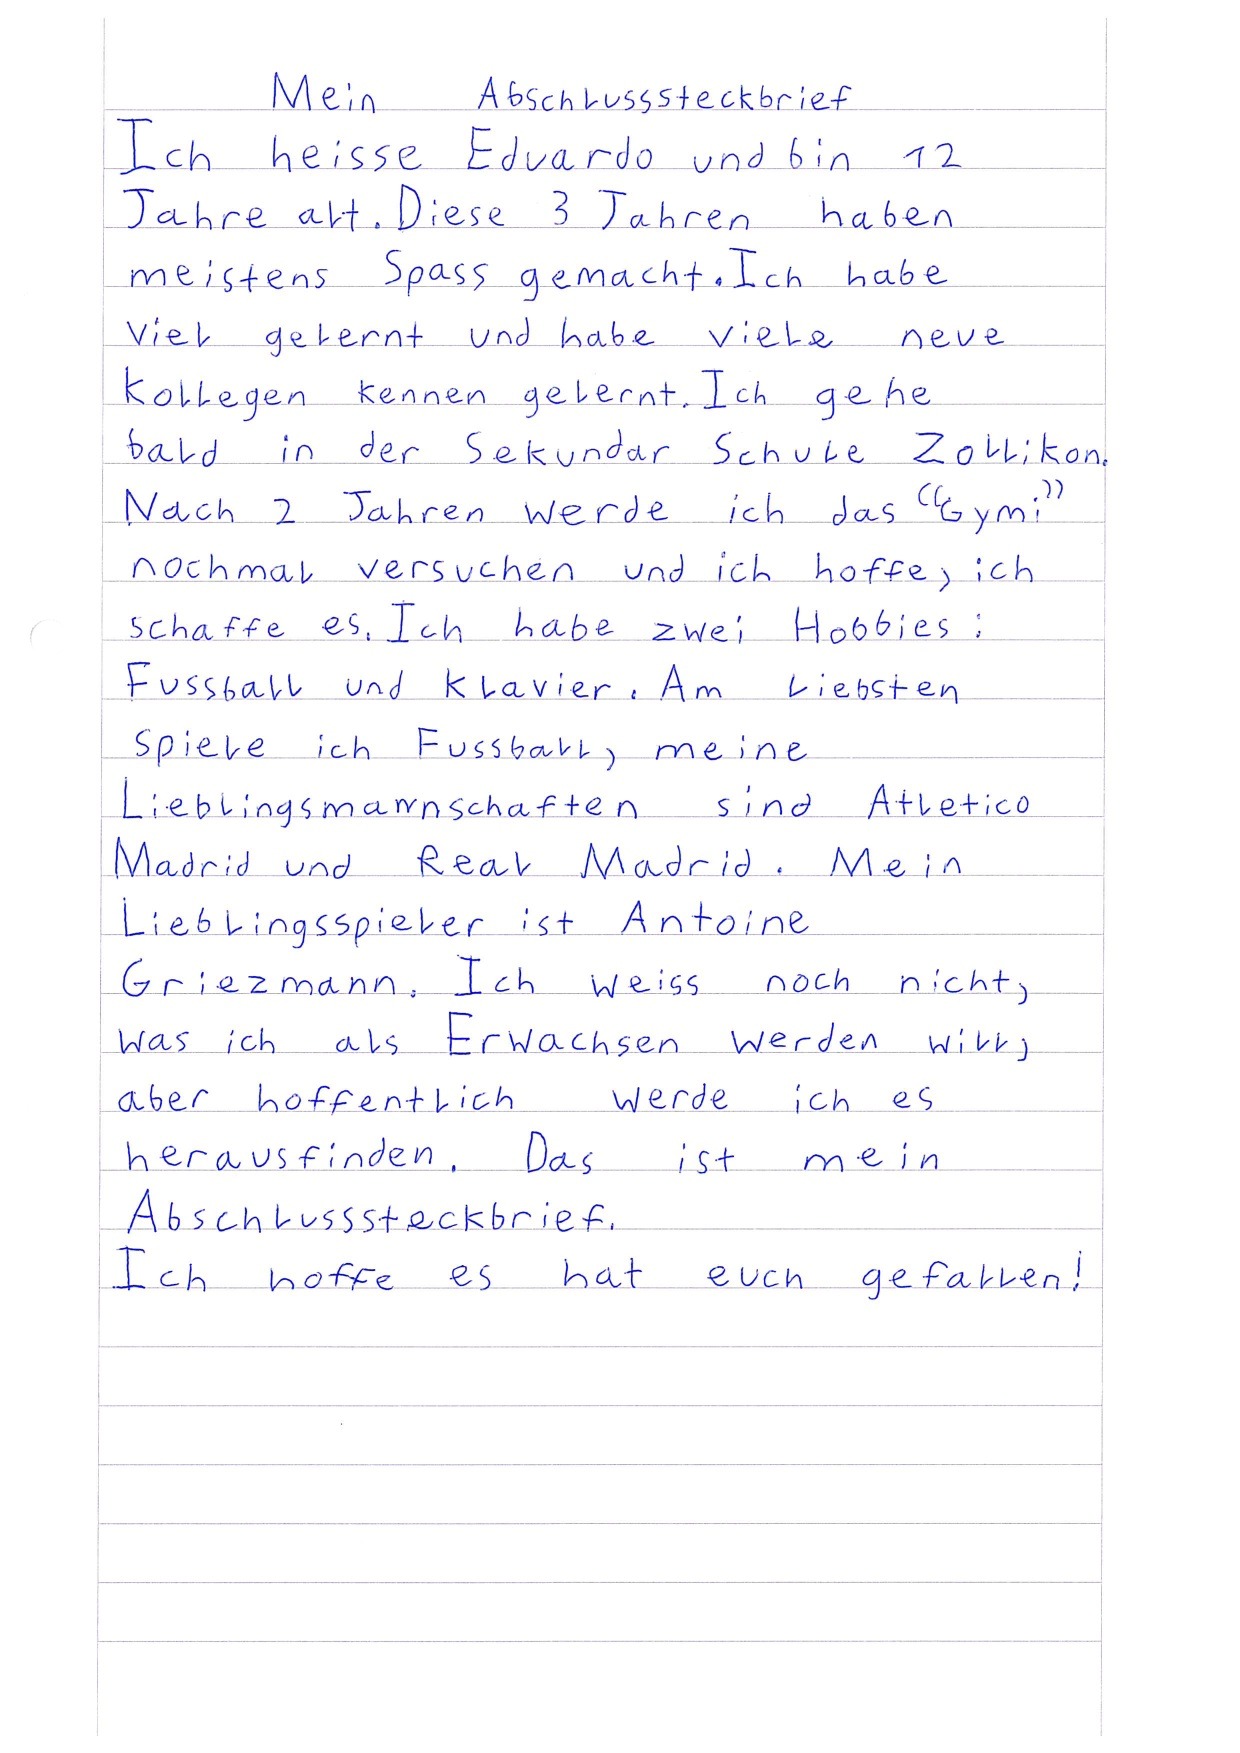 Mein Abschlusssteckbrief
Ich heisse Eduardo und bin 12
Jahre alt. Diese 3 Jahren haben
meistens Spass gemacht. Ich habe
viel gelernt und habe viele neue
Kollegen kennen gelernt. Ich gehe
bald in der Sekundar Schule Zollikon.
Nach 2 Jahren werde ich das "Gymi"
nochmal versuchen und ich hoffe, ich
schaffe es. Ich habe zwei Hobbies:
Fussball und Klavier. Am Liebsten
spiele ich Fussball, meine
Lieblingsmannschaften sind Atletico
Madrid und Real Madrid. Mein
Lieblingsspieler ist Antoine
Griezmann. Ich weiss noch nicht,
was ich als Erwachsen werden will,
aber hoffentlich werde ich es
herausfinden. Das ist mein
Abschlusssteckbrief.
Ich hoffe es hat euch gefallen!